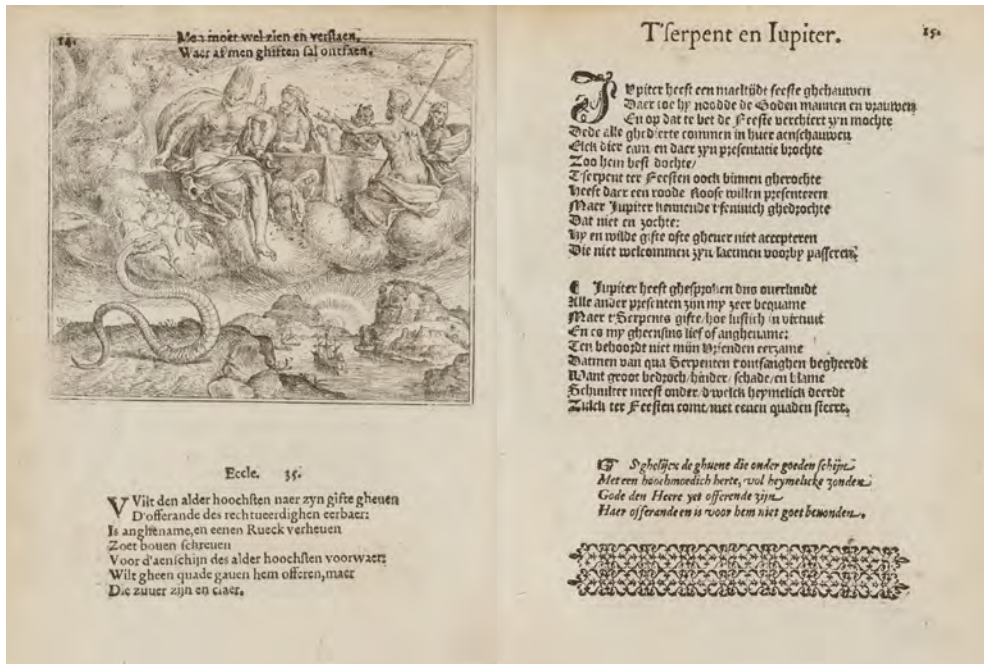 14.
Men moet wel zien en verstaen.
Waer af men ghiften sal ontfaen.
Eccle. 35.
VVilt den alder hoochsten naer zyn gifte gheuen
D'offerande des rechtueerdighen eerbaer:
Is anghename, en eenen Rueck verheuen
Zoet bouen schreuen
Voor d'aenschijn des alder hoochsten voorwaer:
Wilt gheen quade gauen hem offeren, maer
Die zuuer zijn en claer.
T'serpent en Iupiter.
15.
Iupiter heeft een maeltijdt feeste ghehauwen
Daer toe hy noodde de Goden mannen en vrauwen
En op dat te bet de Feeste verchiert zyn mochte
Dede alle ghedierte commen in huer aenschauwen
Elck dier cam en daer zyn presentatie brochte
Zoo hem best dochte/
T'serpent ter Feesten oock binnen gherochte
Heeft daer een roode Roose willen presenteren
Maer Iupiter kennende t'fenijnich ghedrochte
Dat niet en zochte:
Hy en wilde gifte ofte gheuer niet accepteren
Die niet welcommen zyn laetmen voorby passeren.
¶ Iupiter heeft ghesproken dus ouerluudt
Alle ander presenten zijn my zeer bequame
Maer t'Serpents gifte/hoe lustich in virtuut
En es my gheensins lief of anghename:
Ten behoordt niet mijn Vrienden eerzame
Datmen van qua Serpenten t'ontfanghen begheerdt
Want groot bedroch/hinder/schade/en blame
Schuulter meest onder/d'welck heymelick deerdt
Zulck ter Feesten comt/met eenen quaden steert.
☞ S'ghelijcx de ghuene die onder goeden schijn
Met een hoochmoedich herte, vol heymelicke zonden
Gode den Heere yet offerende zijn
Haer offerande en is voor hem niet goet beuonden.